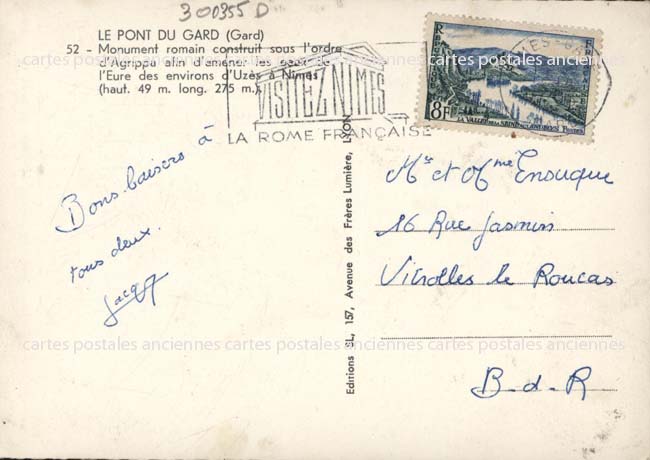 300355 D
LE PONT DU GARD (Gard)
52 - Monument romain construit sous l'ordre
d'Agrippa afin d'amener les eaux de
l'Eure des environs d'Uzès à Nîmes
(haut. 49 m. long. 275 m.).
VISITEZ NIMES
LA ROME FRANÇAISE
NIMES-GARE
8F
LA VALLÉE DE LA SEINE AUX ANDELYS POSTES
Bons baisers à
tous deux.
Jacqy
Editions SL, 157, Avenue des Frères Lumière, LYON
Mr et Mme Ensuque
16 Rue Jasmin
Vitrolles le Roucas
B-d-R
cartes postales anciennes cartes postales anciennes cartes postales anciennes
cartes postales anciennes cartes postales anciennes cartes postales anciennes